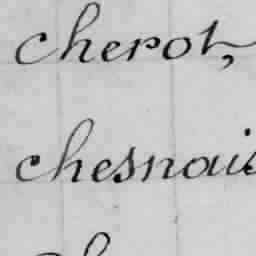 cherot,
chesnais